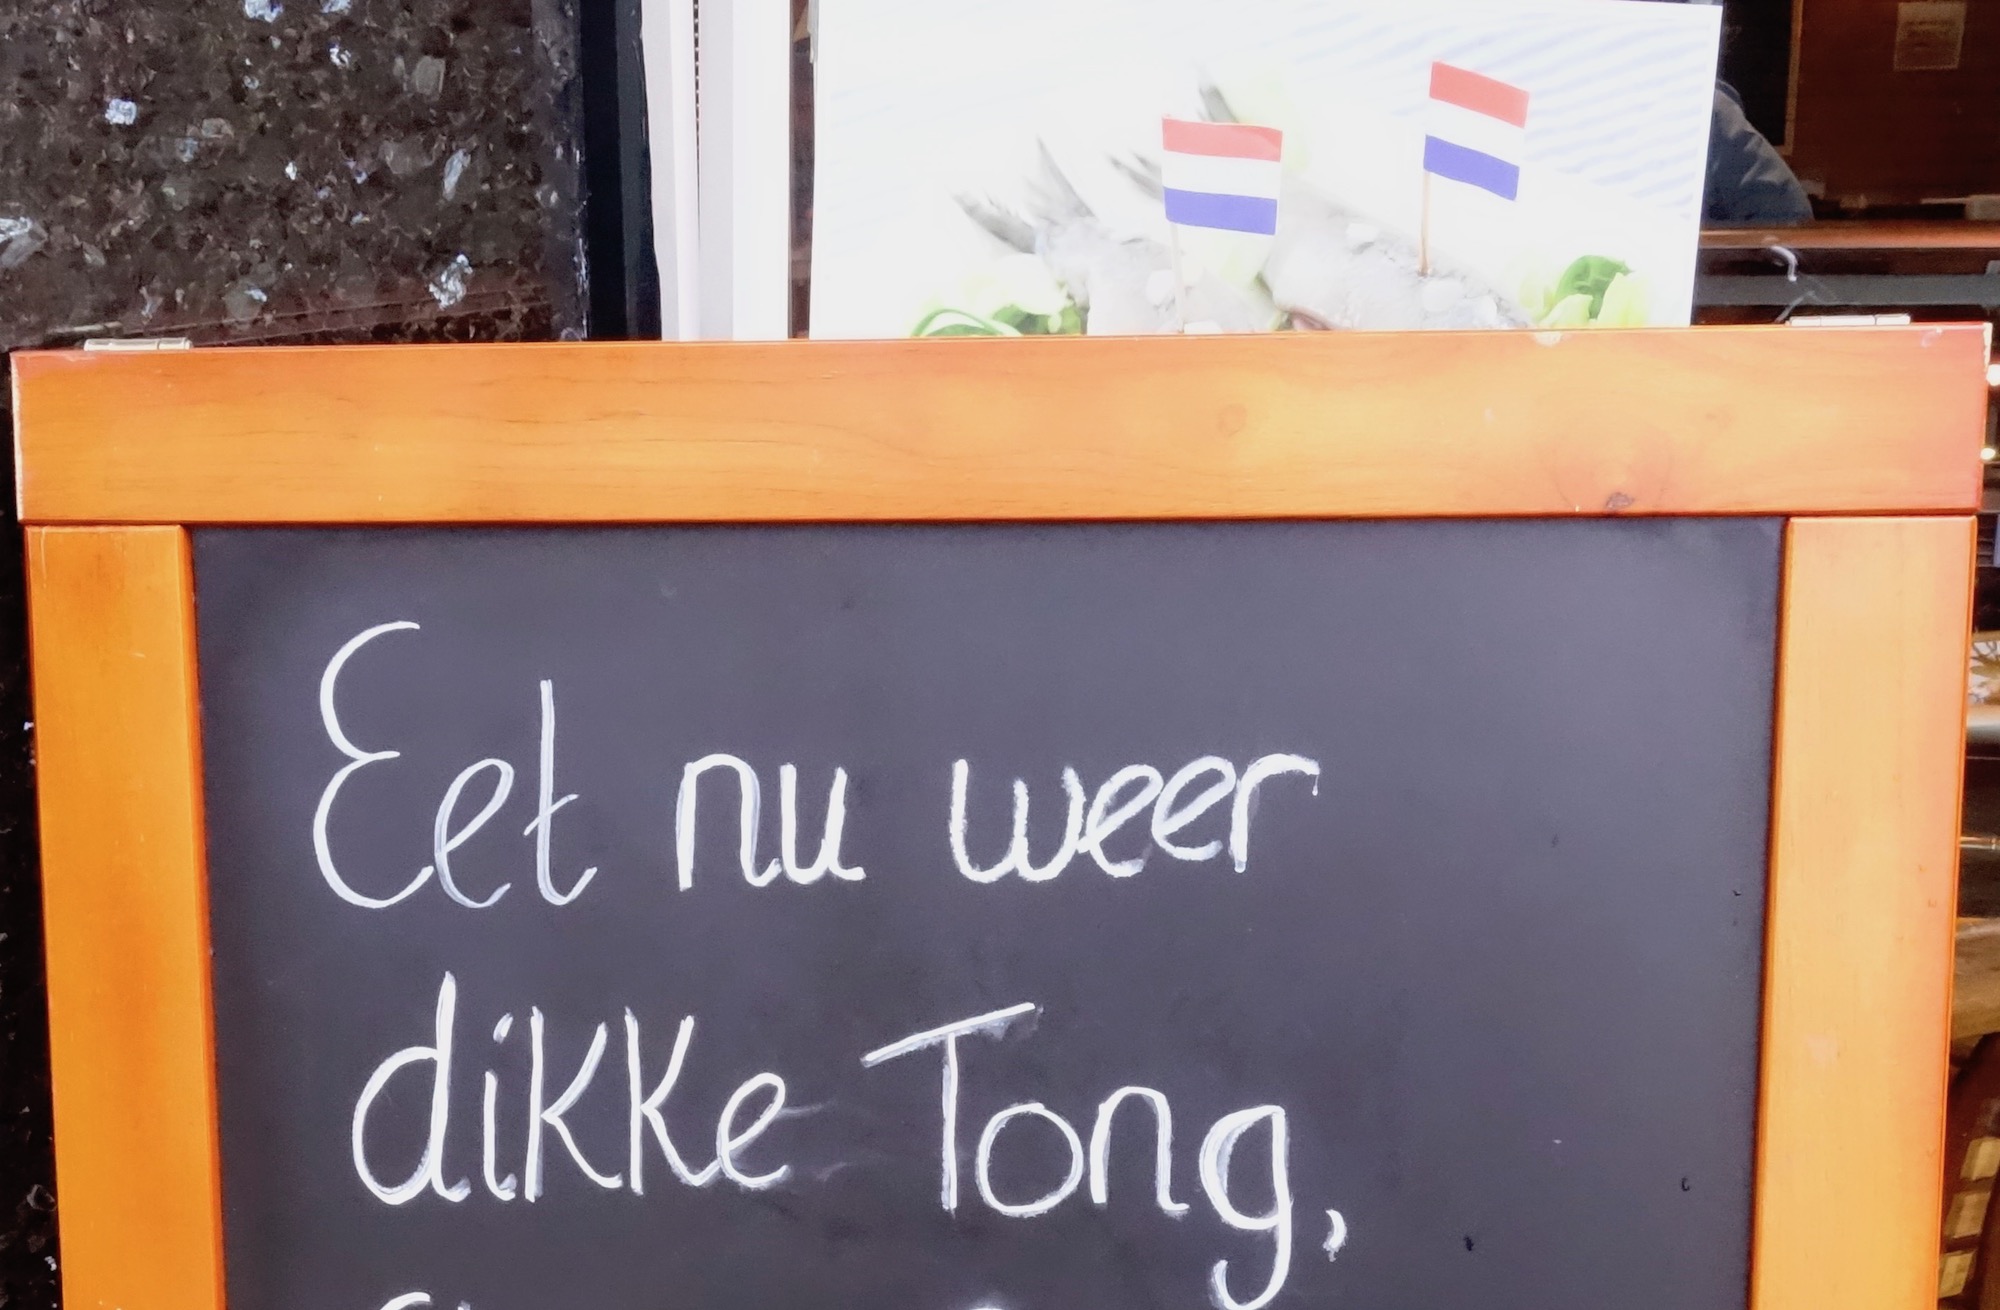 Eet nu weer
dikke Tong,